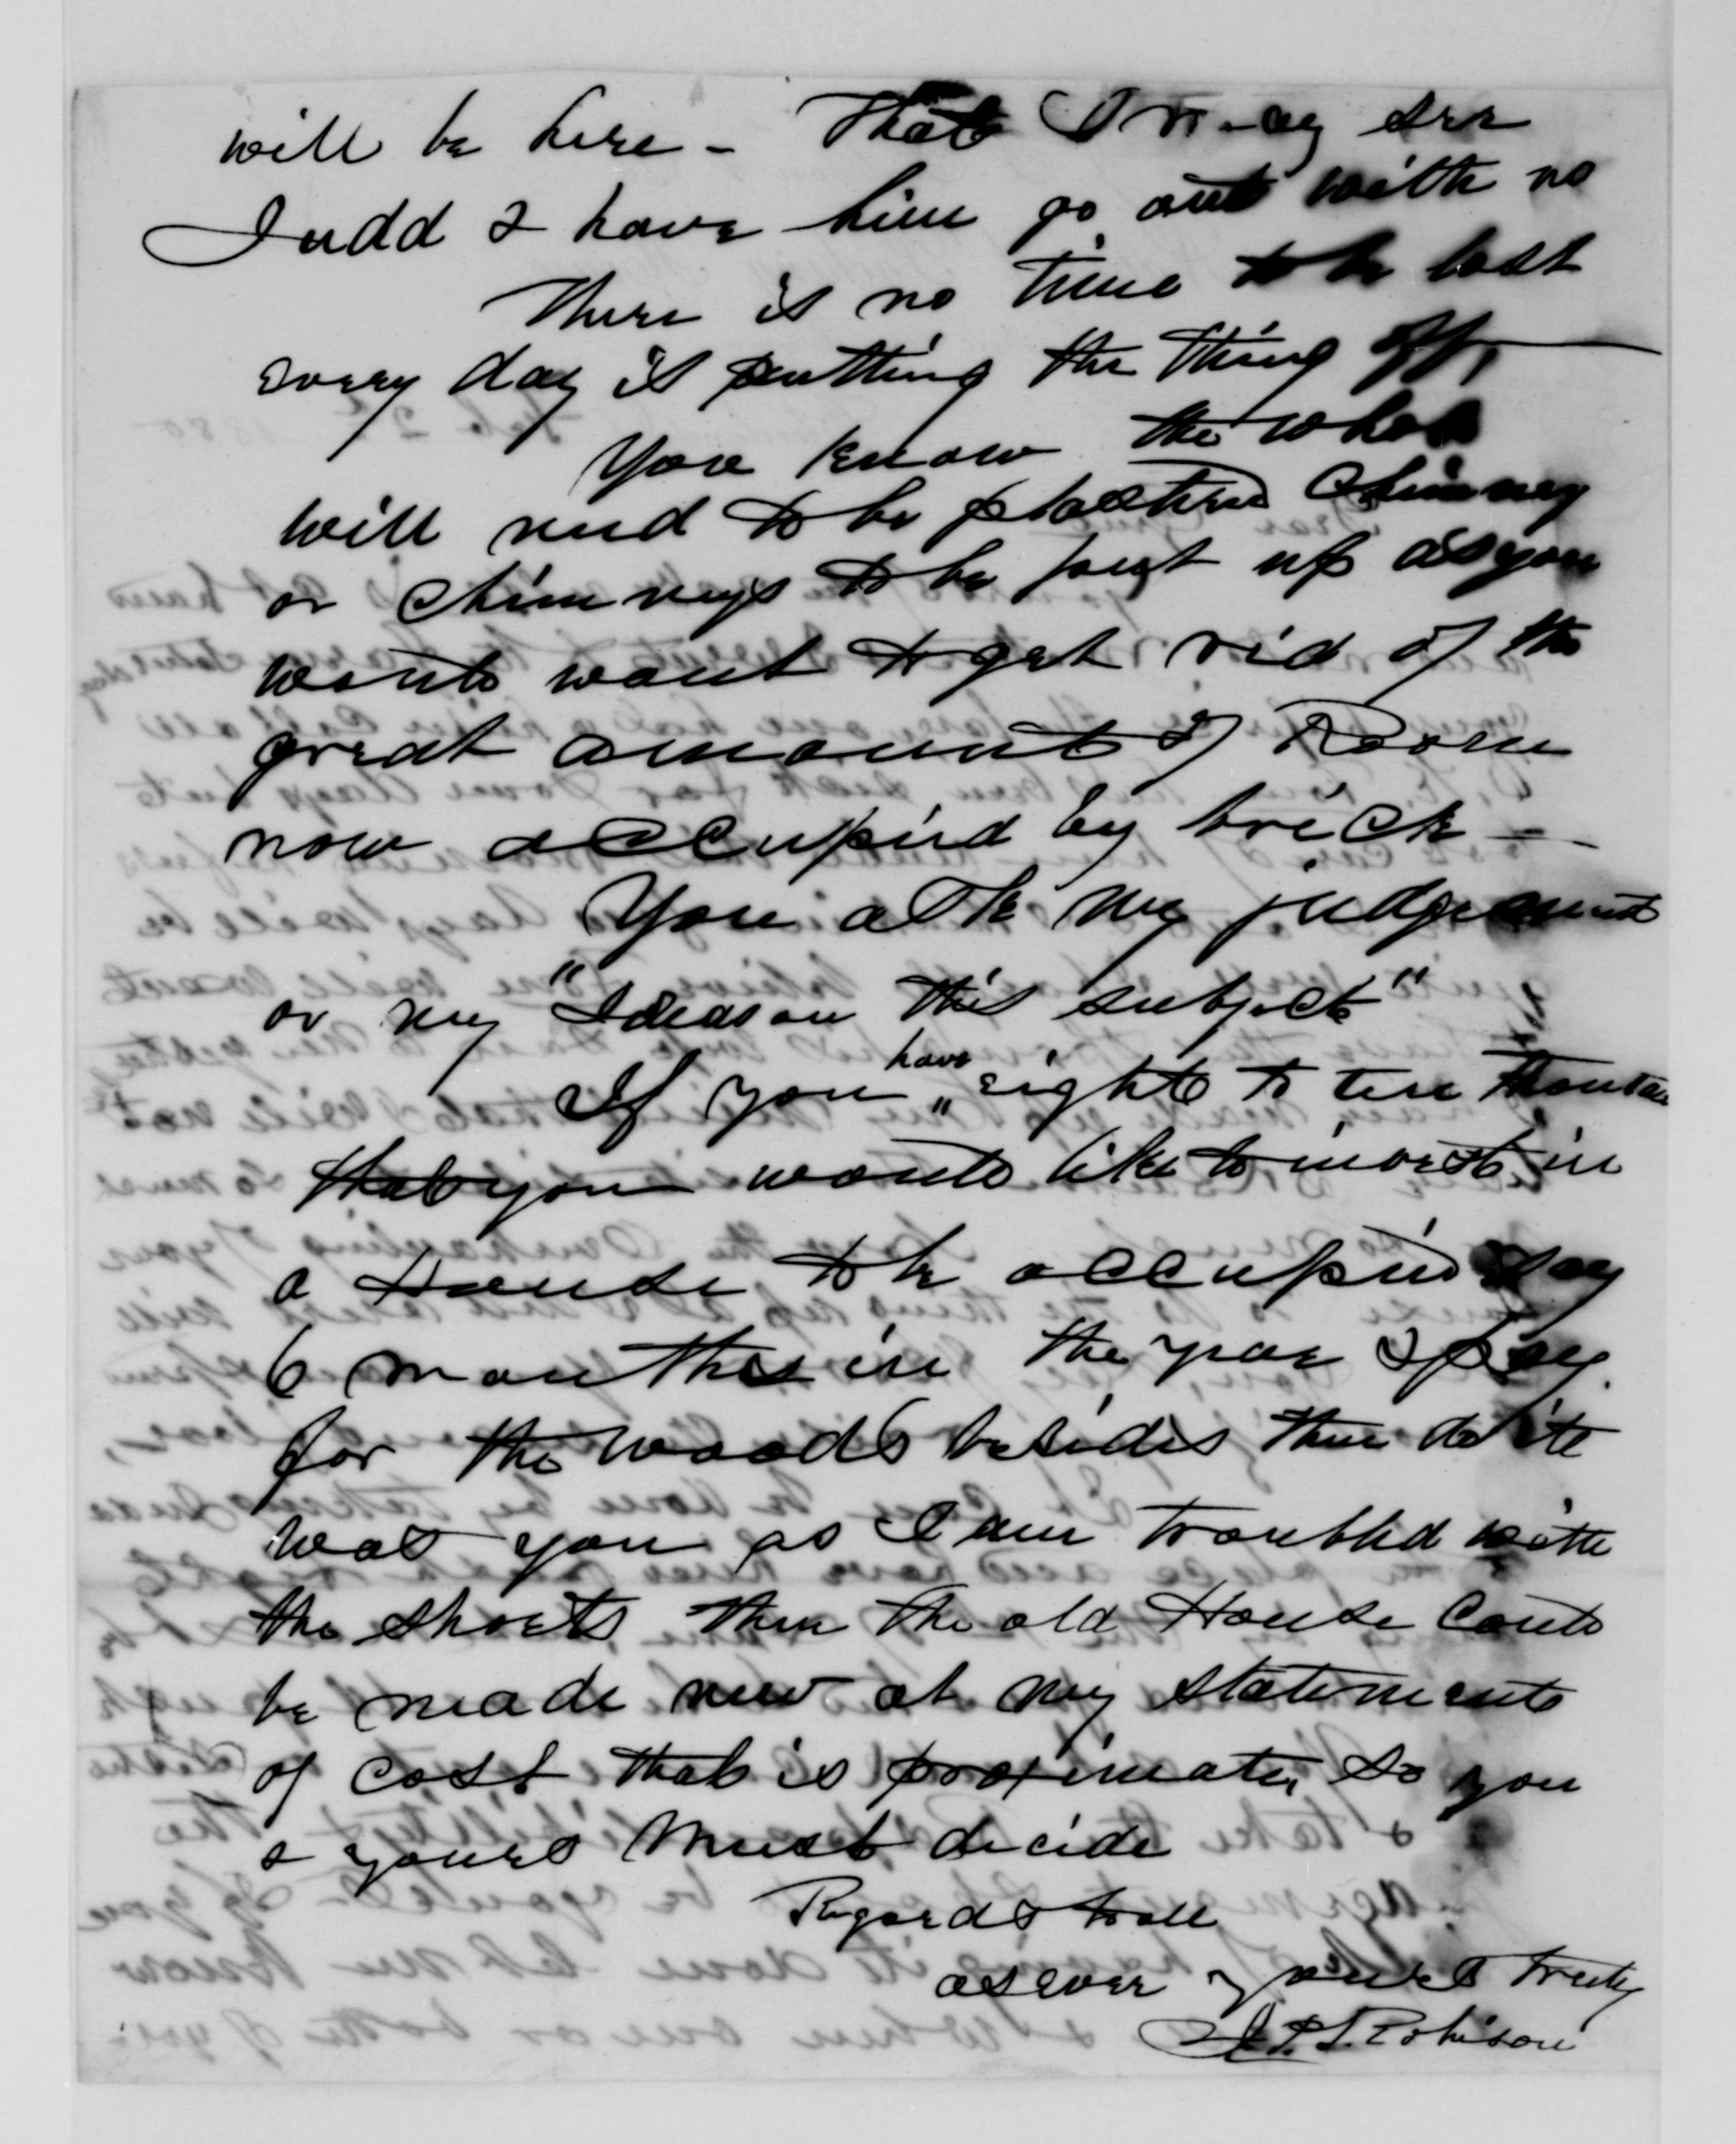 will be here - That I may see
Judd & have him go out with us
There is no time to be lost
every day is putting the thing off,
You know the whole
will need to be plastered Chimney
or Chimneys to be put up as you
would want to get rid of the
great amount of Room
now occupied by brick -
You ask my judgement
or my "Ideas on this subject"
If you have right to ten Thousand
that you would like to invest in
a House to be occupied say
6 months in the year & pay
for the woods besides then do it
was you as I am troubled with
the shorts then the old House could
be made new at my statements
of cost that is proximate, so you
& yours must decide
Regards to all
as ever yours Truly
J. P. Robison